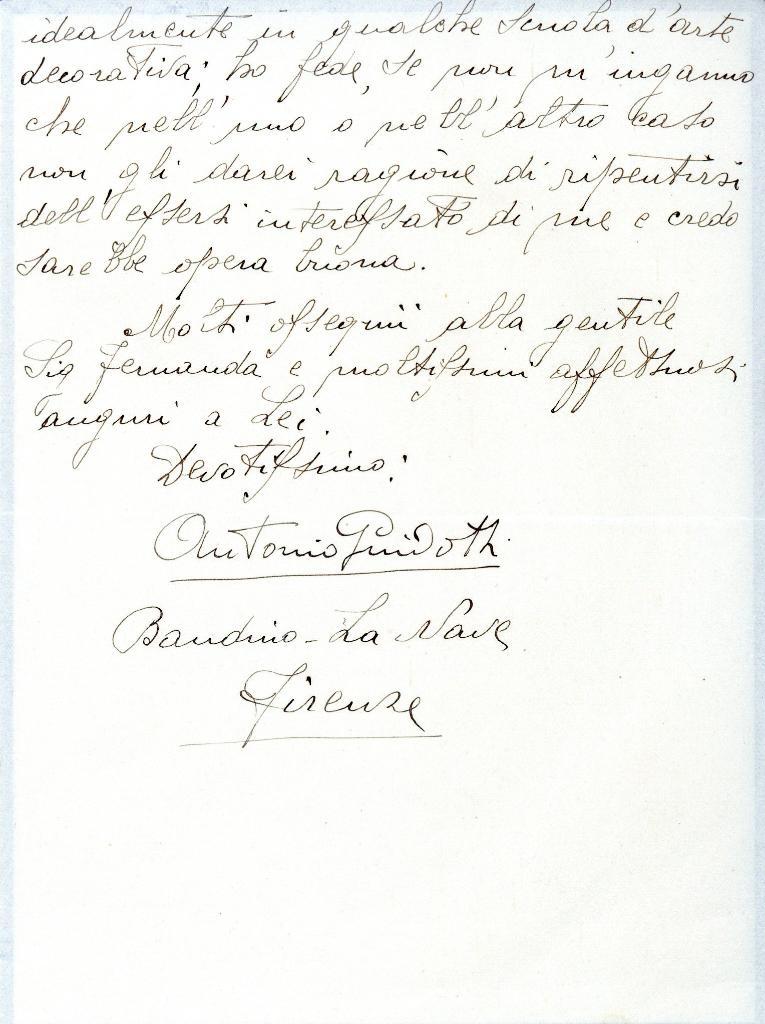 idealmente in qualche scuola d'arte
decorativa; ho fede, se non m'inganno
che nell'uno o nell'altro caso
non gli darei ragione di ripentirsi
dell'essersi interessato di me e credo
sarebbe opera buona.
Molti ossequii alla gentile
Sig Fernanda e moltissimi affettuosi
auguri a Lei.
Devotissimo:
Antonio Guidotti
Bandino - La Nave
Firenze